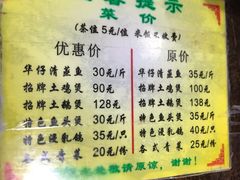 提示
菜价
(茶位 5元/位
优惠价 原价
华仔清蒸鱼 30元/斤 华仔清蒸鱼 35元/斤
招牌土鸡煲 90元 招牌土鸡煲 100元
招牌土鹅煲 128元 招牌土鹅煲 138元
特色鱼头煲 30元/斤 特色鱼头煲 35元/斤
特色浸乳鸽 35元/只 特色浸乳鸽 40元/只
各式青菜 20元/份 各式青菜 25元/份
敬请原谅，谢谢！